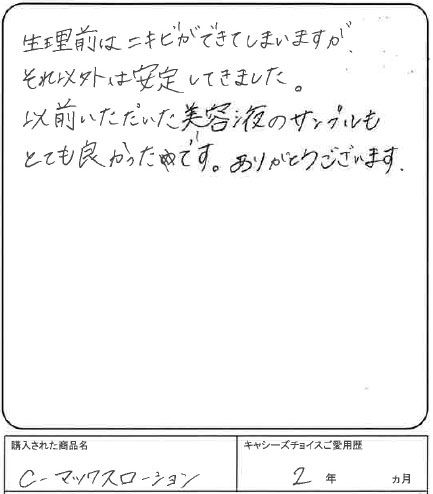 生理前はニキビができてしまいますが、
それ以外は安定してきました。
以前いただいた美容液のサンプルも
とても良かったです。ありがとうございます.
購入された商品名
キャシーズチョイスご愛用歴
C-マックスローション
2 年 カ月